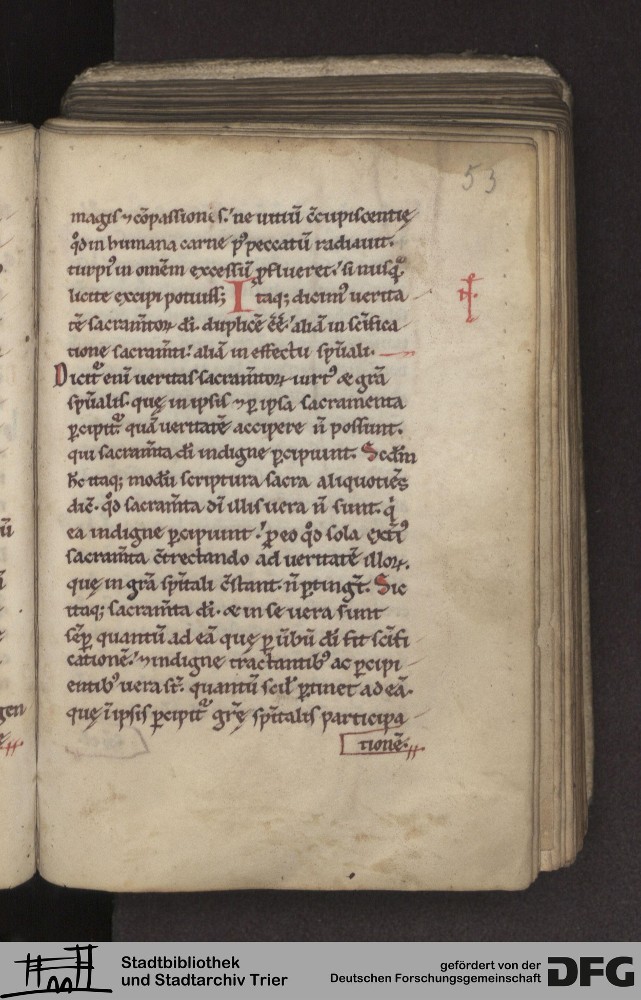 53
magis ⁊ cōpassionis.' ne uitiū c̄cupiscentię
qd̄ in humana carne p' peccatū radiauit.
turpi' in om̄em excessū ꝓflueret.' si nusq̄
licite excipi potuiss;  Itaq; dicim' uerita
tē sacram̄toꝝ dī. duplicē ēē.' aliā in sc̄ifica
tione sacram̄ti.' aliā in effectu sp̄uali.
Dicit᷑ eni uer̄itas sacram̄toꝝ uirt' & gr̄a
sp̄ualis. quę in ipsis ⁊ ꝑ ipsa sacramenta
ꝑcipit᷑. quā ueritatē accipere n̄ possunt.
qui sacram̄ta dī indigne ꝑcipiunt. Scd̄m
hc̄ itaq; modū scriptura sacra aliquotiēs
dic̄. qd̄ sacram̄ta dī illis uera n̄ sunt. q̇
ea indigne ꝑcipiunt.' ꝓ eo qd̄ sola ext̄i'
sacram̄ta c̄trectando ad ueritatē illoꝝ.
quę in gr̄a sp̄itali c̄stant. n̄ ꝑtingt̄. Sic
itaq; sacram̄ta dī. & in se uera sunt
sēꝑ quantū ad eā quę ꝑ ūbū dī fit sc̄ifi
cationē.' ⁊ indigne tractantib' ac ꝑcipi
entib' uera st̄. quantū scil' ꝑtinet ad eā.
quę ī ipsis ꝑcipit᷑ gr̄ę sp̄italis participa
tionē.
ū
gen
Stadtbibliothek
und Stadtarchiv Trier
gefördert von der
Deutschen Forschungsgemeinschaft
DFG